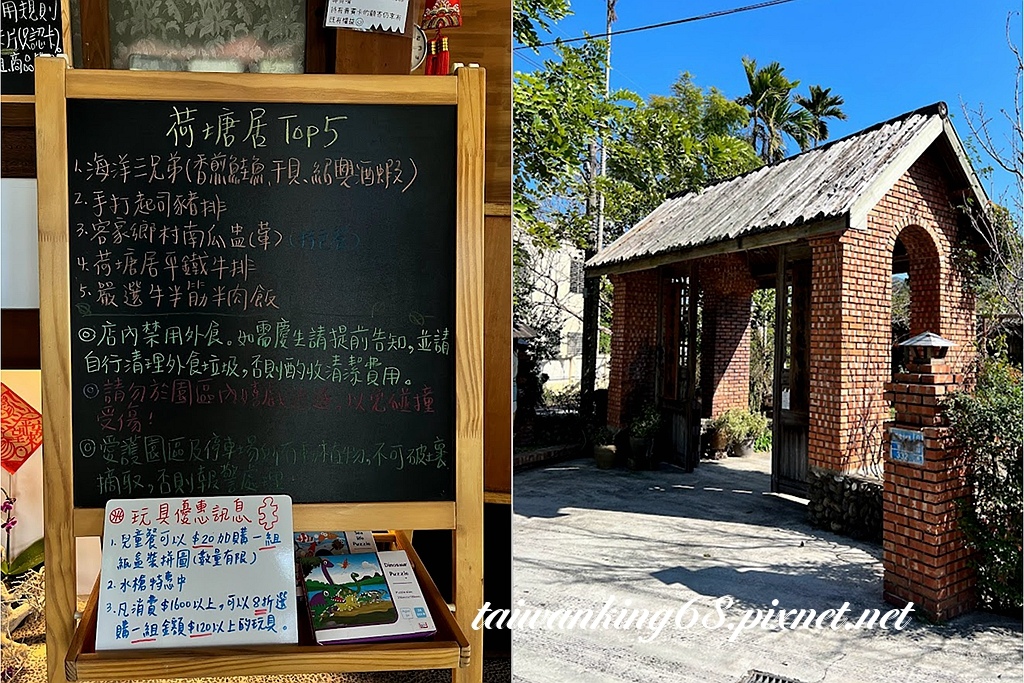 用規則
荷塘居Top5
1.海洋三兄弟(香煎鮭魚、干貝、紹興酒蝦)
2.手打起司豬排
3.客家鄉村南瓜盅(葷)
4.荷塘居平鐵牛排
5.嚴選牛半筋半肉飯
◎店內禁用外食。如需慶生請提前告知,並請
自行清理外食垃圾,否則酌收清潔費用。
◎請勿於園區內 以免碰撞
受傷!
◎愛護園區及停車場 物,不可破壞
摘取,否則報警處理
玩具優惠訊息
1.兒童餐可以$20加購一組
紙盒裝拼圖(數量有限)
2.水槍特惠中
3.凡消費$1600以上,可以8折選
購一組金額$120以上的玩具。
Puzzle
Dinosaur
Puzzle
taiwanking68.pixnet.net